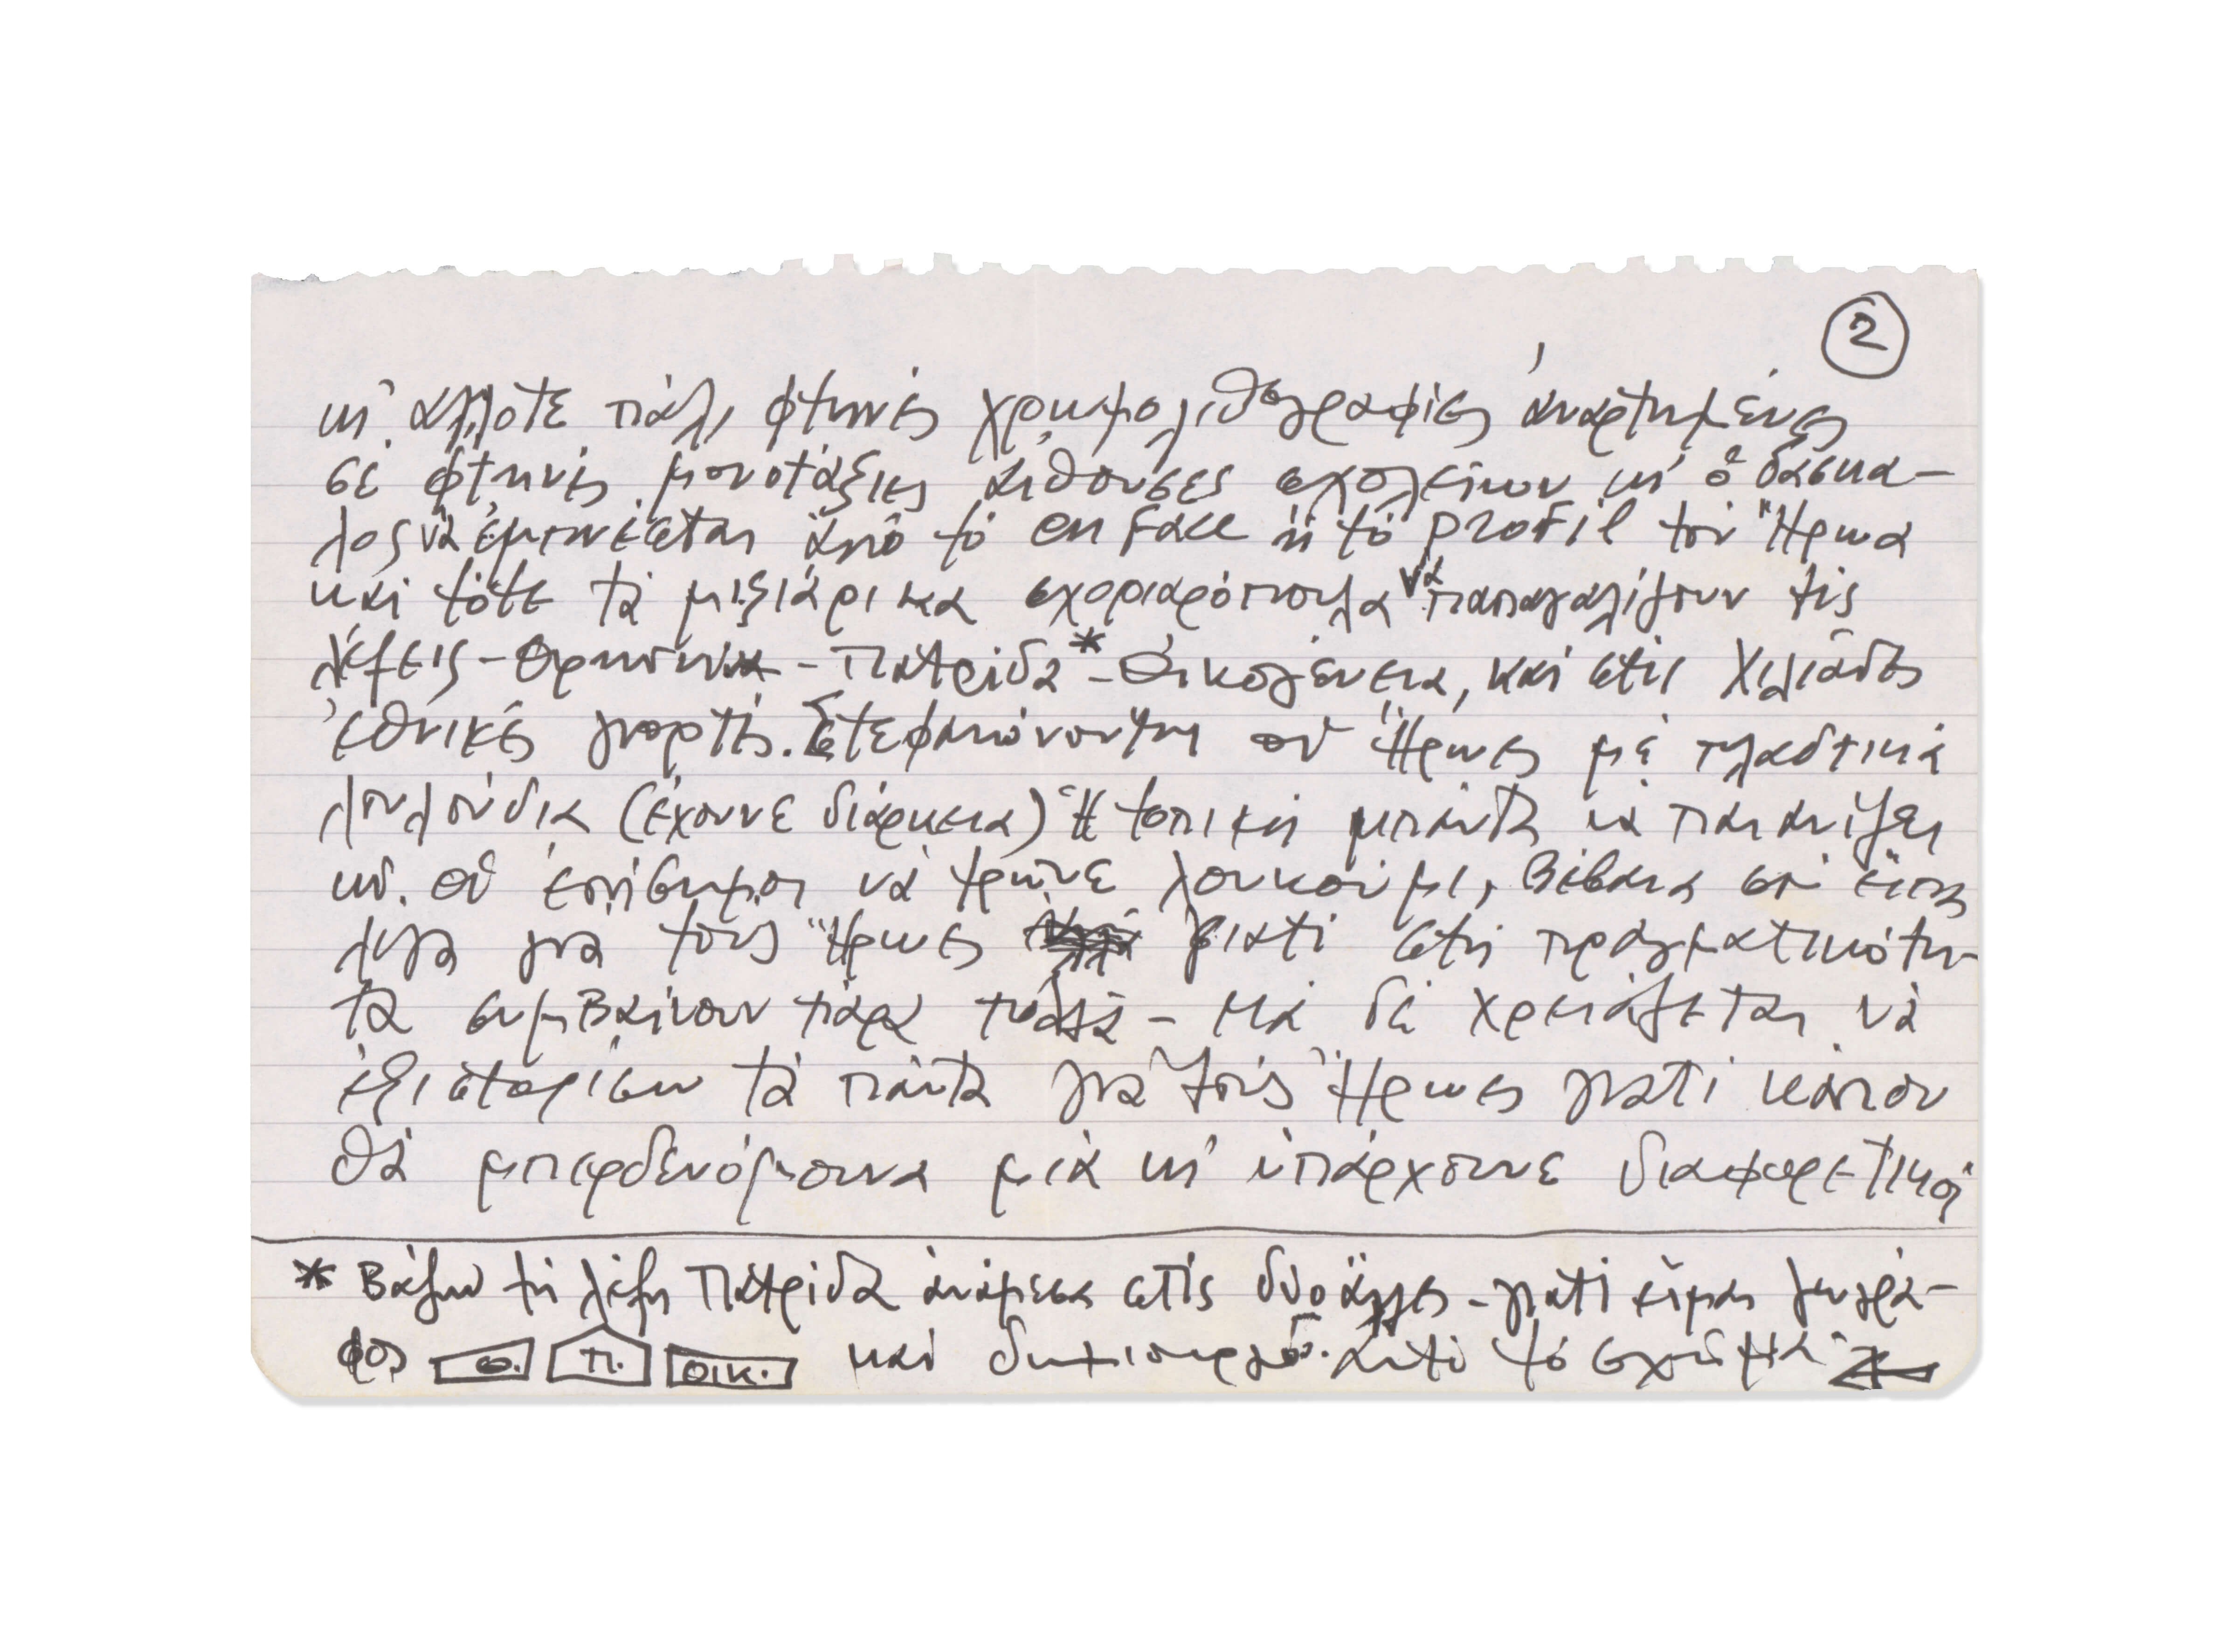 2
κι' ἄλλοτε πάλι φτηνές χρωμολιθογραφίες ἀναρτημένες
σέ φτηνές μονοτάξιες αἴθουσες σχολείων κι' ὁ δάσκα-
λος νά ἐμπνέεται ἀπό τό en face ἤ τό profil τοῦ Ἥρωα
καί τότε τά μυξιάρικα σχολιαρόπουλα νά παπαγαλίζουν τίς
λέξεις - Θρησκεία - Πατρίδα * - Οἰκογένεια, καί στίς χιλιάδες
ἐθνικές γιορτές. Στεφανώνονται οἱ Ἥρωες μέ πλαστικά
λουλούδια (ἔχουνε διάρκεια) Ἡ τοπική μπάντα νά παιανίζει
κι' οἱ ἐπίσημοι νά τρῶνε λουκούμι, βέβαια σοῦ εἶπα
λίγα γιά τούς Ἥρωες γιατί στή πραγματικότη-
τα συμβαίνουν πάρα πολλά - Μά δέ χρειάζεται νά
ἐξιστορίσω τά πάντα γιά τούς Ἥρωες γιατί κάπου
θά μπερδενόμουνα μιά κι' ὑπάρχουνε διαφορετικοί
* Βάζω τή λέξη Πατρίδα ἀνάμεσα στίς δύο ἄλλες - γιατί εἶμαι ζωγρά-
φος Θ. Π. ΟΙΚ. καί δημιουργῶ αὐτό τό σχῆμα